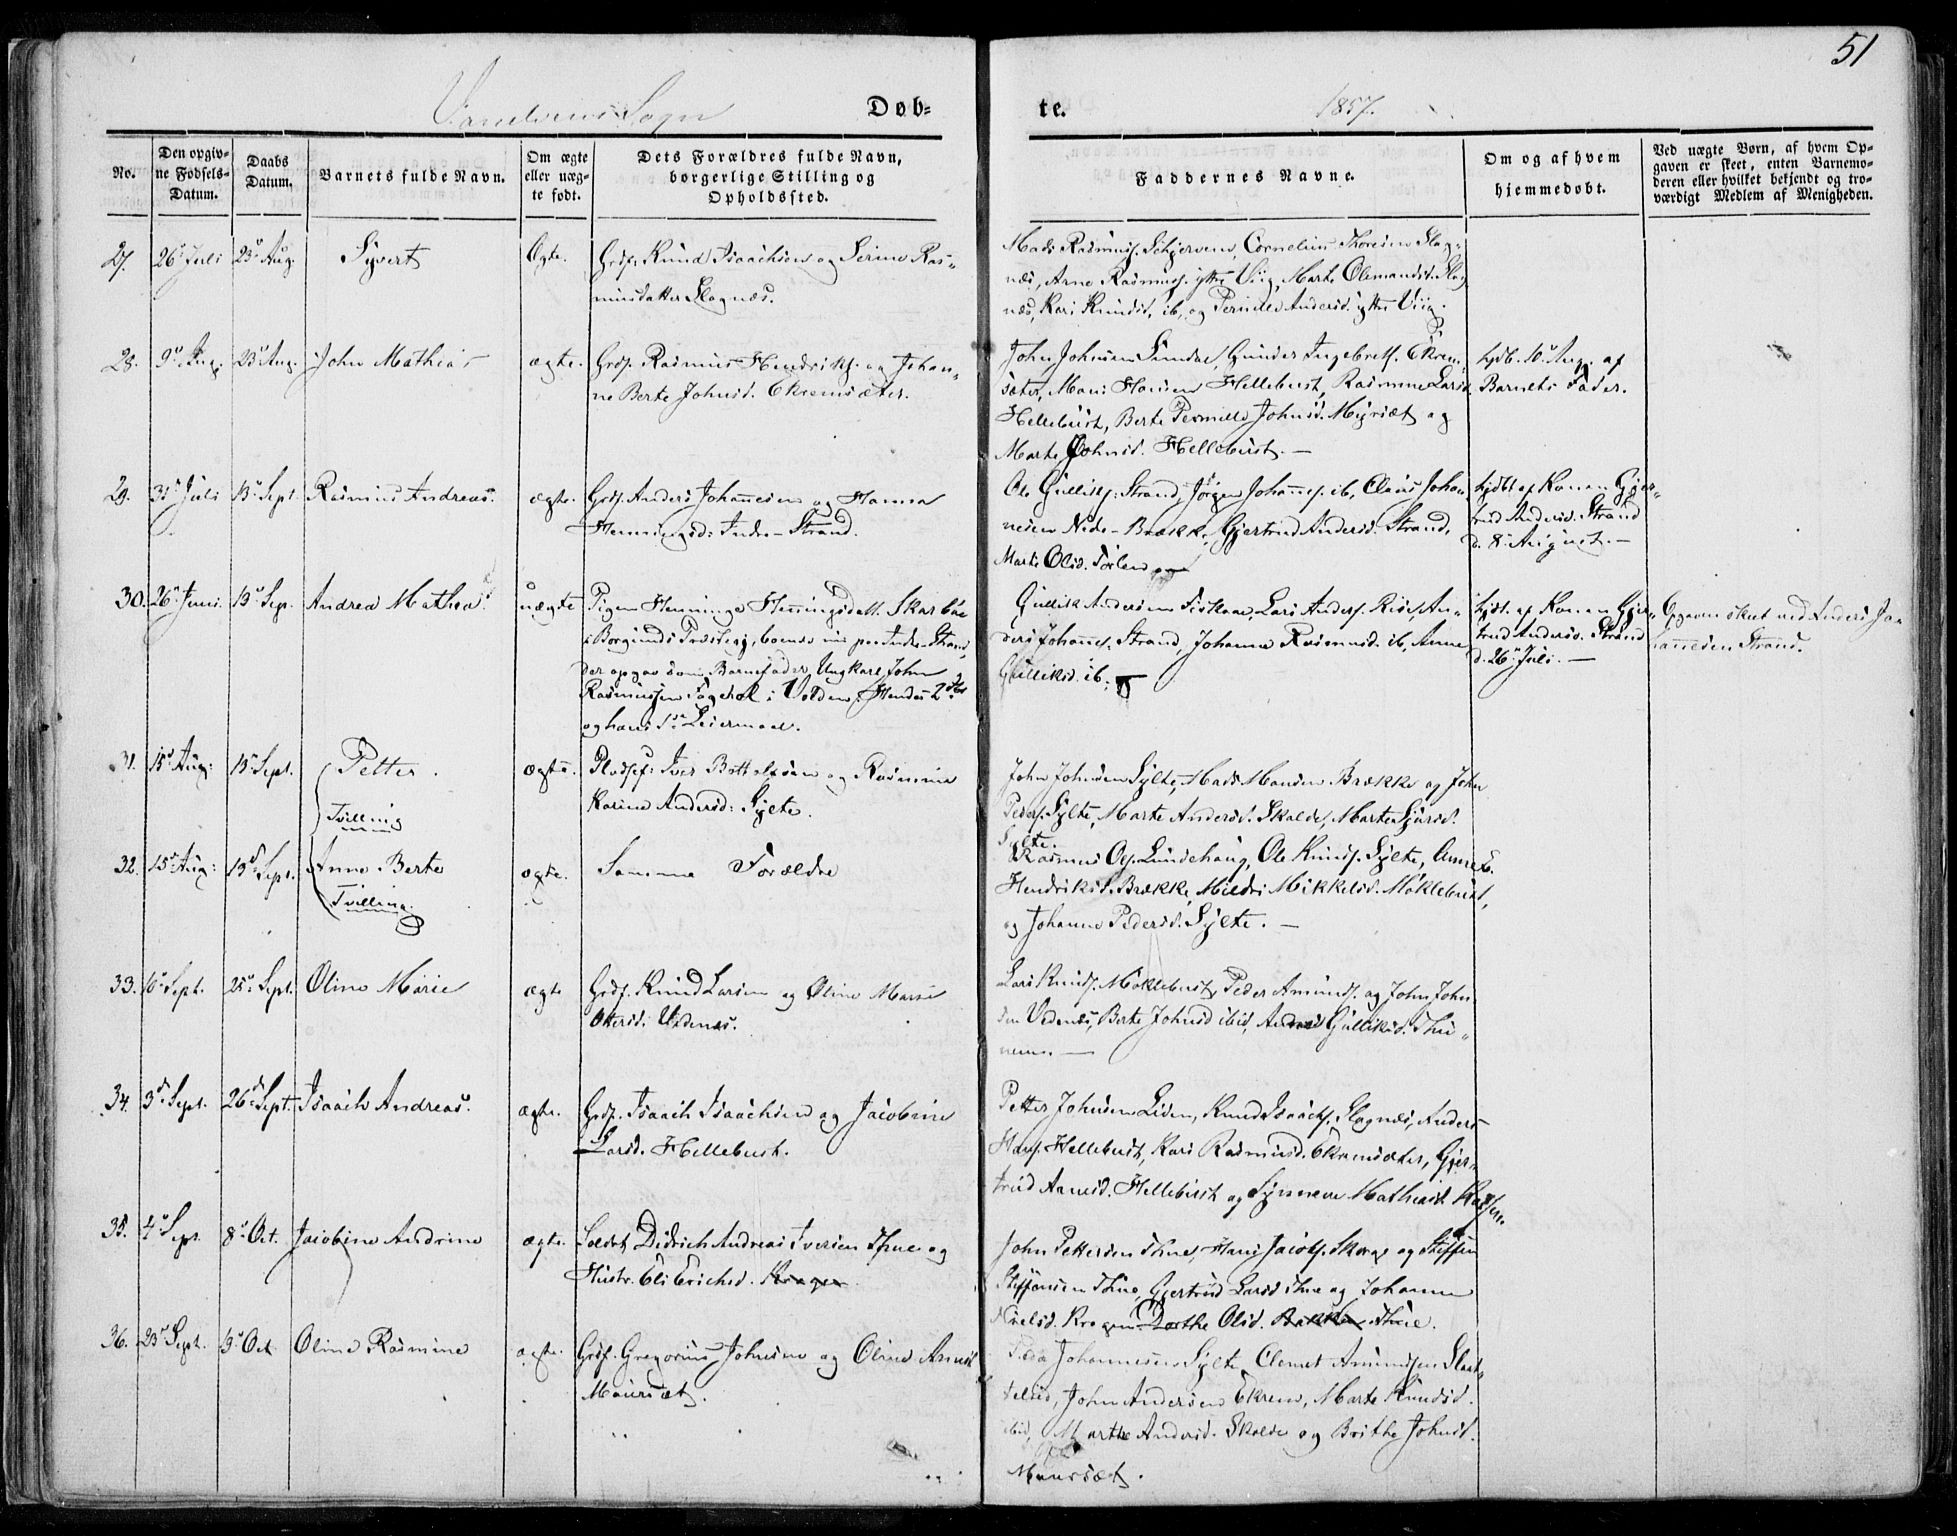 51
Vanelvens Sogn Døb-
te. 1857.
No.
Den opgiv-
ne Fødsels-
Datum.
Daabs
Datum.
Barnets fulde Navn.
Om ægte
eller uæg-
te født.
Dets Forældres fulde Navn,
borgerlige Stilling og
Opholdssted.
Faddernes Navne.
Om og af hvem
hjemmedøbt.
Ved uægte Børn, af hvem Op-
gaven er skeet, enten Barnemo-
deren eller hvilket bekjendt og tro-
værdigt Medlem af Menigheden.
27. 26 Juli 23 Aug. Syvert Ægte.
Grdf. Knud Isaachsen og Serine Ras-
musdatter Slagnæs.
Mads Rasmus. Schjervene, Cornelius Thoresen Slag-
næs, Arne Rasmus. ytter Viig, Marte Olemandsd. Slag
næs, Kari Knudsd. ib, og Pernille Andersd. ytter Viig.
28. 9 Aug. 23 Aug. John Mathias ægte.
Grdf. Rasmus Hendriks. og Johan-
ne Berte Johnsd. Ekremsæter.
John Johnsen Sundal, Gunder Ingebrets. Ekrem-
sæter, Mons Hansen Hellebust, Rasmine Larsd.
Hellebust, Berte Pernille Johnsd. Myrsæt og
Marte Johnsd. Hellebust. —
hjdb. 10 Aug. af
Barnets Fader.
29. 31 Juli 13 Sept. Rasmus Andreas. ægte.
Grdf. Anders Johannesen og Hanna
Henningsd: Indre-Strand.
Ole Gulliks: Strand, Jørgen Johannes. ib, Claus Johan
nesen Nedre-Brække, Gjertrud Andersd. Strand,
Marte Olsd. Sørlen
hjdbt af Konen Gjer-
trud Andersd. Strand
d. 8 August. —
30. 26 Juni. 13 Sep. Andrea Mathea. uægte
Pigen Henninge Henningsdatt. Skarbøe
i Borgunds Præstegj, boende nu paa Indre-Strand,
der opgav som Barnefader Ungkarl John
Rasmussen Fagerhol i Volden. Hendes 2det
og hans 1ste Leiermaal.
Gullik Andersen Fiskaae, Lars Anders. Riise, An-
ders Johannes. Strand, Johanne Rasmusd. ib, Anne
Gulliksd. ib.
hjdt. af Konen Gjer-
trud Andersd. Strand
d. 26 Juli. —
Opgaven skeet ved Anders Jo-
hannesen Strand.
31. 15 Aug: 13 Sept. Petter. ægte.
Tvilling
Pladsf: Iver Bottolfsen og Rasmine
Karine Andersd: Sylte.
John Johnsen Sylte, Mads Monsen Brække og John
Peders. Sylte, Marte Andersd. Skalde, Marte Sjursd.
Sylte.
32. 15 Aug: 13 Sept. Anne Berte ægte.
Tvilling.
Samme Forældre
Rasmus Ols. Lundehaug, Ole Knuds. Sylte, Anne E.
Hendriksd. Brække, Mildri Mikkelsd. Møklebust,
og Johanne Pedersd. Sylte. —
33. 10 Sept. 25 Sept. Oline Marie ægte
Grdf. Knud Larsen og Oline Marie
Ottersd: Vedenæs.
Lars Knuds. Møklebust, Peder Amunds. og John John
sen Vedenæs, Berte Johnsd ibid, Gulliksd. Thu-
nem. —
34. 3 Sept. 26 Sept. Isaach Andreas. ægte.
Grdf. Isaach Isaachsen og Jacobine
Larsd. Hellebust.
Petter Johnsen Liden, Knud Isaachs. Slagnæs, Anders
Hans. Hellebust, Kari Rasmusd. Ekremsæter, Gjer-
trud Aanesd. Hellebust og Synneve Mathiasd.
35. 4 Sept 8 Oct. Jacobine Andrine ægte.
Soldat Didrich Andreas Iversen Thue og
Hustr. Eli Erichsd. Kragen.
John Pettersen Thue, Hans Jacobs. Skorge og Steffen
Steffensen Thue, Gjertrud Larsd Thue og Johanne
Nielsd. Kragen. Dorthe Olsd. Bakken Thue.
36. 23 Sept. 3 Oct. Oline Rasmine ægte.
Grdf. Gregorius Johnsen og Oline Arnesd
Maursæt.
Peder Johannesen Sylte, Clemet Amundsen Slaat-
telied, John Andersen Ekrem, Marte Knudsd.
ibid, Marthe Andersd. Skalde og Brithe Johnsd.
Maursæt.